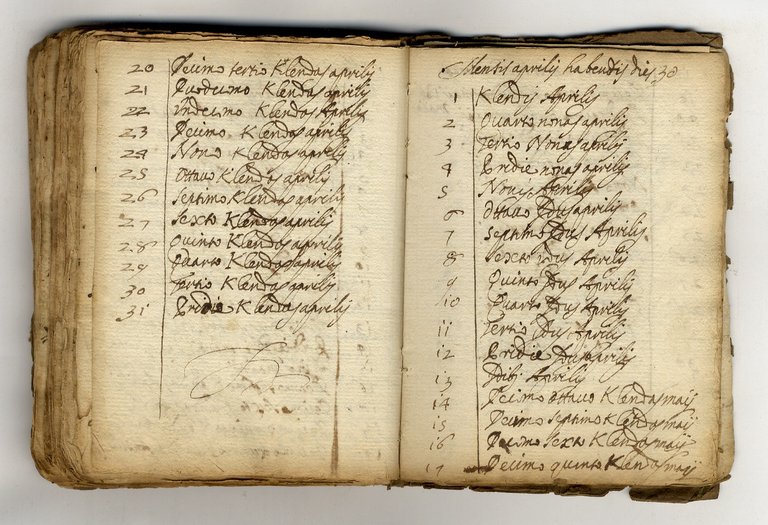 20 Decimo tertio Klendas aprilij
21 Duodecimo Klendas aprilij
22 Undecimo Klendas Aprilij
23 Decimo Klendas aprilij
24 Nono Klendas aprilij
25 ottauo Klendas aprilij
26 septimo Klendas aprilij
27 sexto Klendas aprilij
28 quinto Klendas aprilij
29 quarto Klendas aprilij
30 tertio Klendas aprilij
31 Pridie Klendas aprilij
Mensis aprilij habendis dies 30
1 Klendis Aprilij
2 Quarto nonas aprilij
3 tertio Nonas aprilij
4 Pridie nonas aprilij
5 Nonis Aprilij
6 Ottauo Idus aprilij
7 septimo Idus Aprilij
8 sexto Idus Aprilij
9 Quinto Idus Aprilij
10 Quarto Idus Aprilij
11 tertio Idus Aprilij
12 Pridie Idus aprilij
13 Idibus Aprilij
14 Decimo ottauo Klendas maij
15 Decimo septimo Klendas maij
16 Decimo sexto Klendas maij
17 Decimo quinto Klendas maij